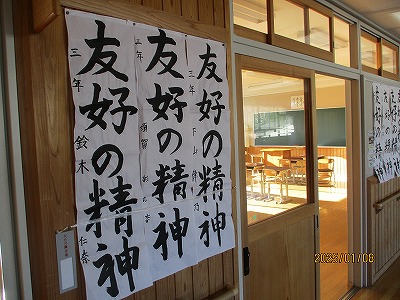 友好の精神
三年 鈴木 仁春
友好の精神
三年
友好の精神
三年 下山
2025/01/08